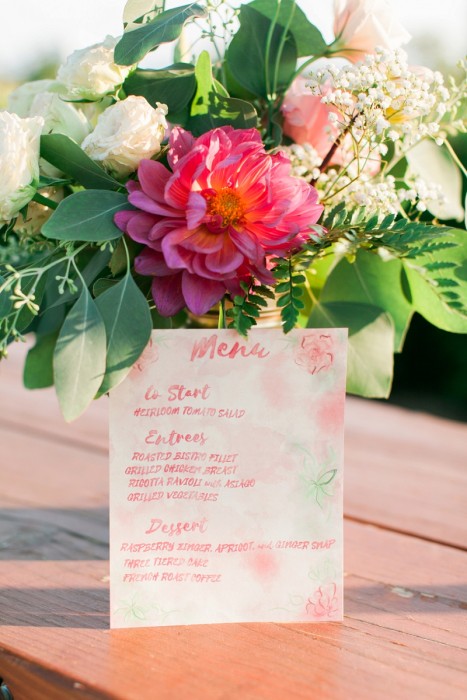 Menu
to Start
HEIRLOOM TOMATO SALAD
Entrees
ROASTED BISTRO FILLET
GRILLED CHICKEN BREAST
RICOTTA RAVIOLI with ASIAGO
GRILLED VEGETABLES
Dessert
RASPBERRY ZINGER, APRICOT, and GINGER SNAP
THREE TIERED CAKE
FRENCH ROAST COFFEE